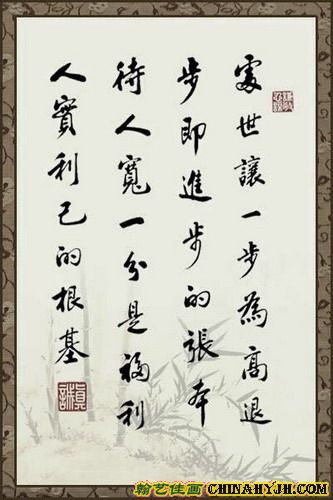 處世讓一步為高退
步即進步的張本
待人寬一分是福利
人實利己的根基
真誠
翰艺佳画 CHINAHYJH.COM